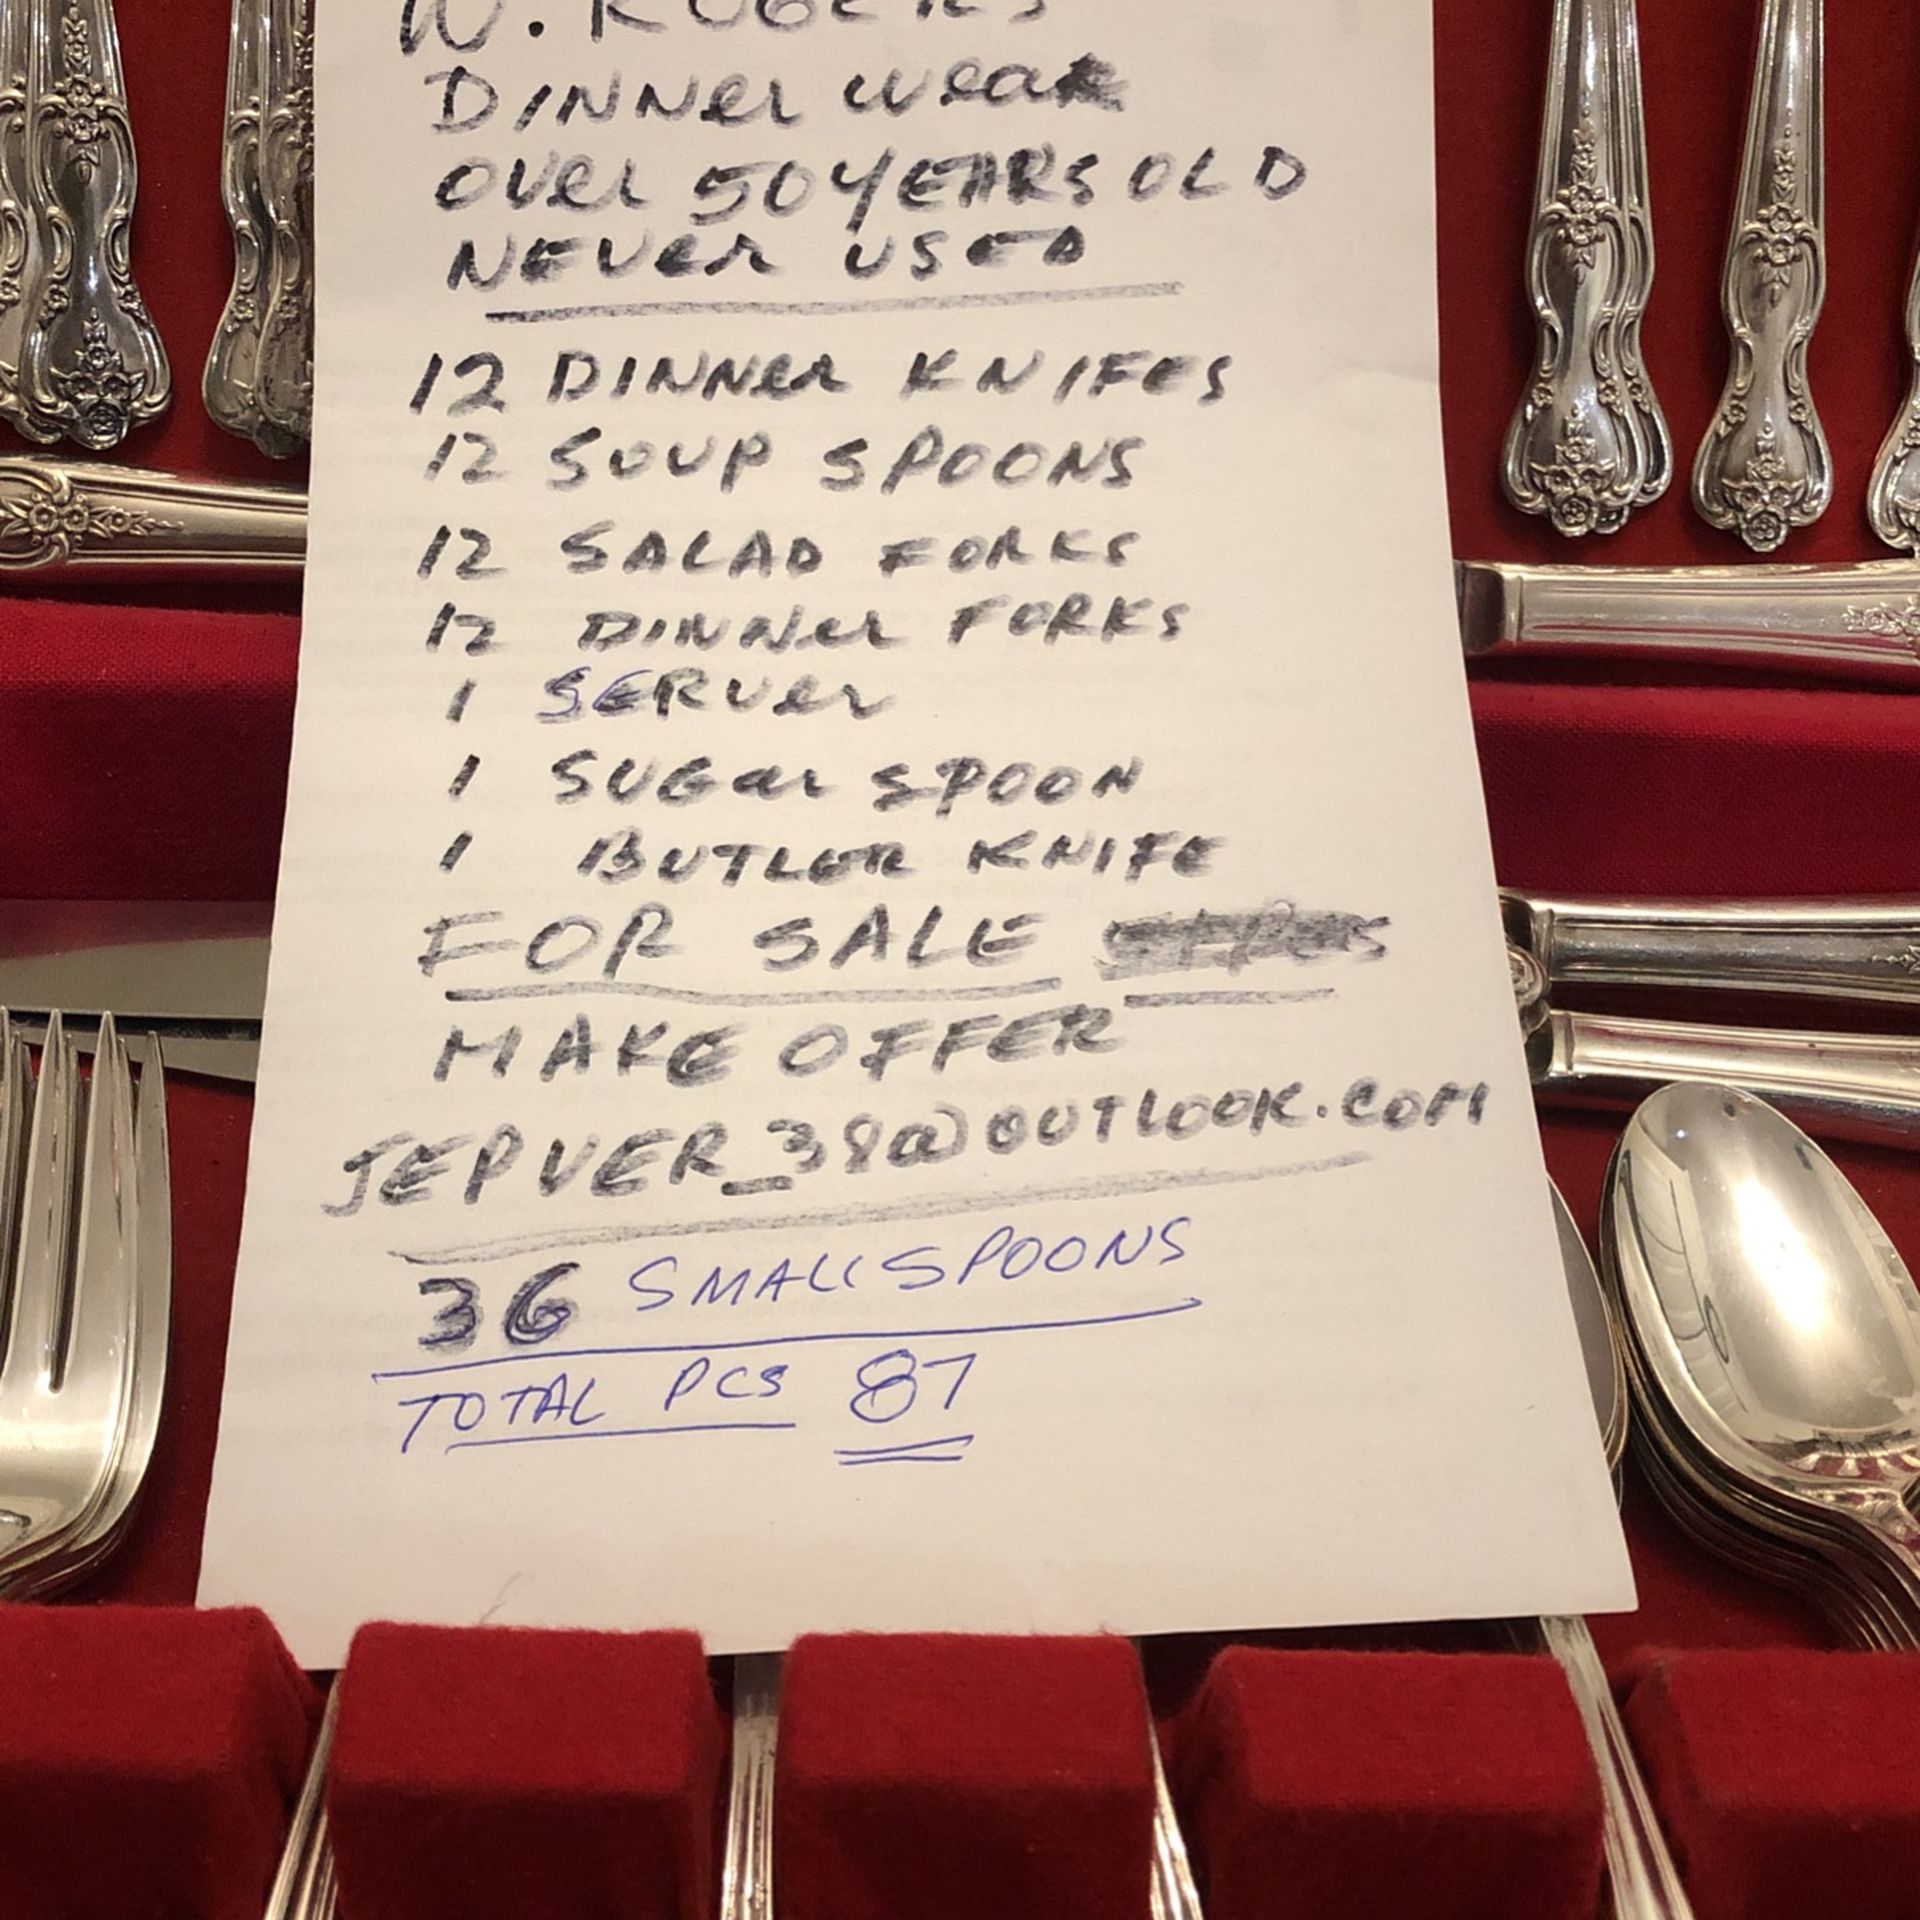 W. ROGERS
DINNER WEAR
OVER 50 YEARS OLD
NEVER USED
12 DINNER KNIFES
12 SOUP SPOONS
12 SALAD FORKS
12 DINNER FORKS
1 SERVER
1 SUGAR SPOON
1 BUTLER KNIFE
FOR SALE
MAKE OFFER
JEPVER_38@OUTLOOK.COM
36 SMALL SPOONS
TOTAL PCS 87